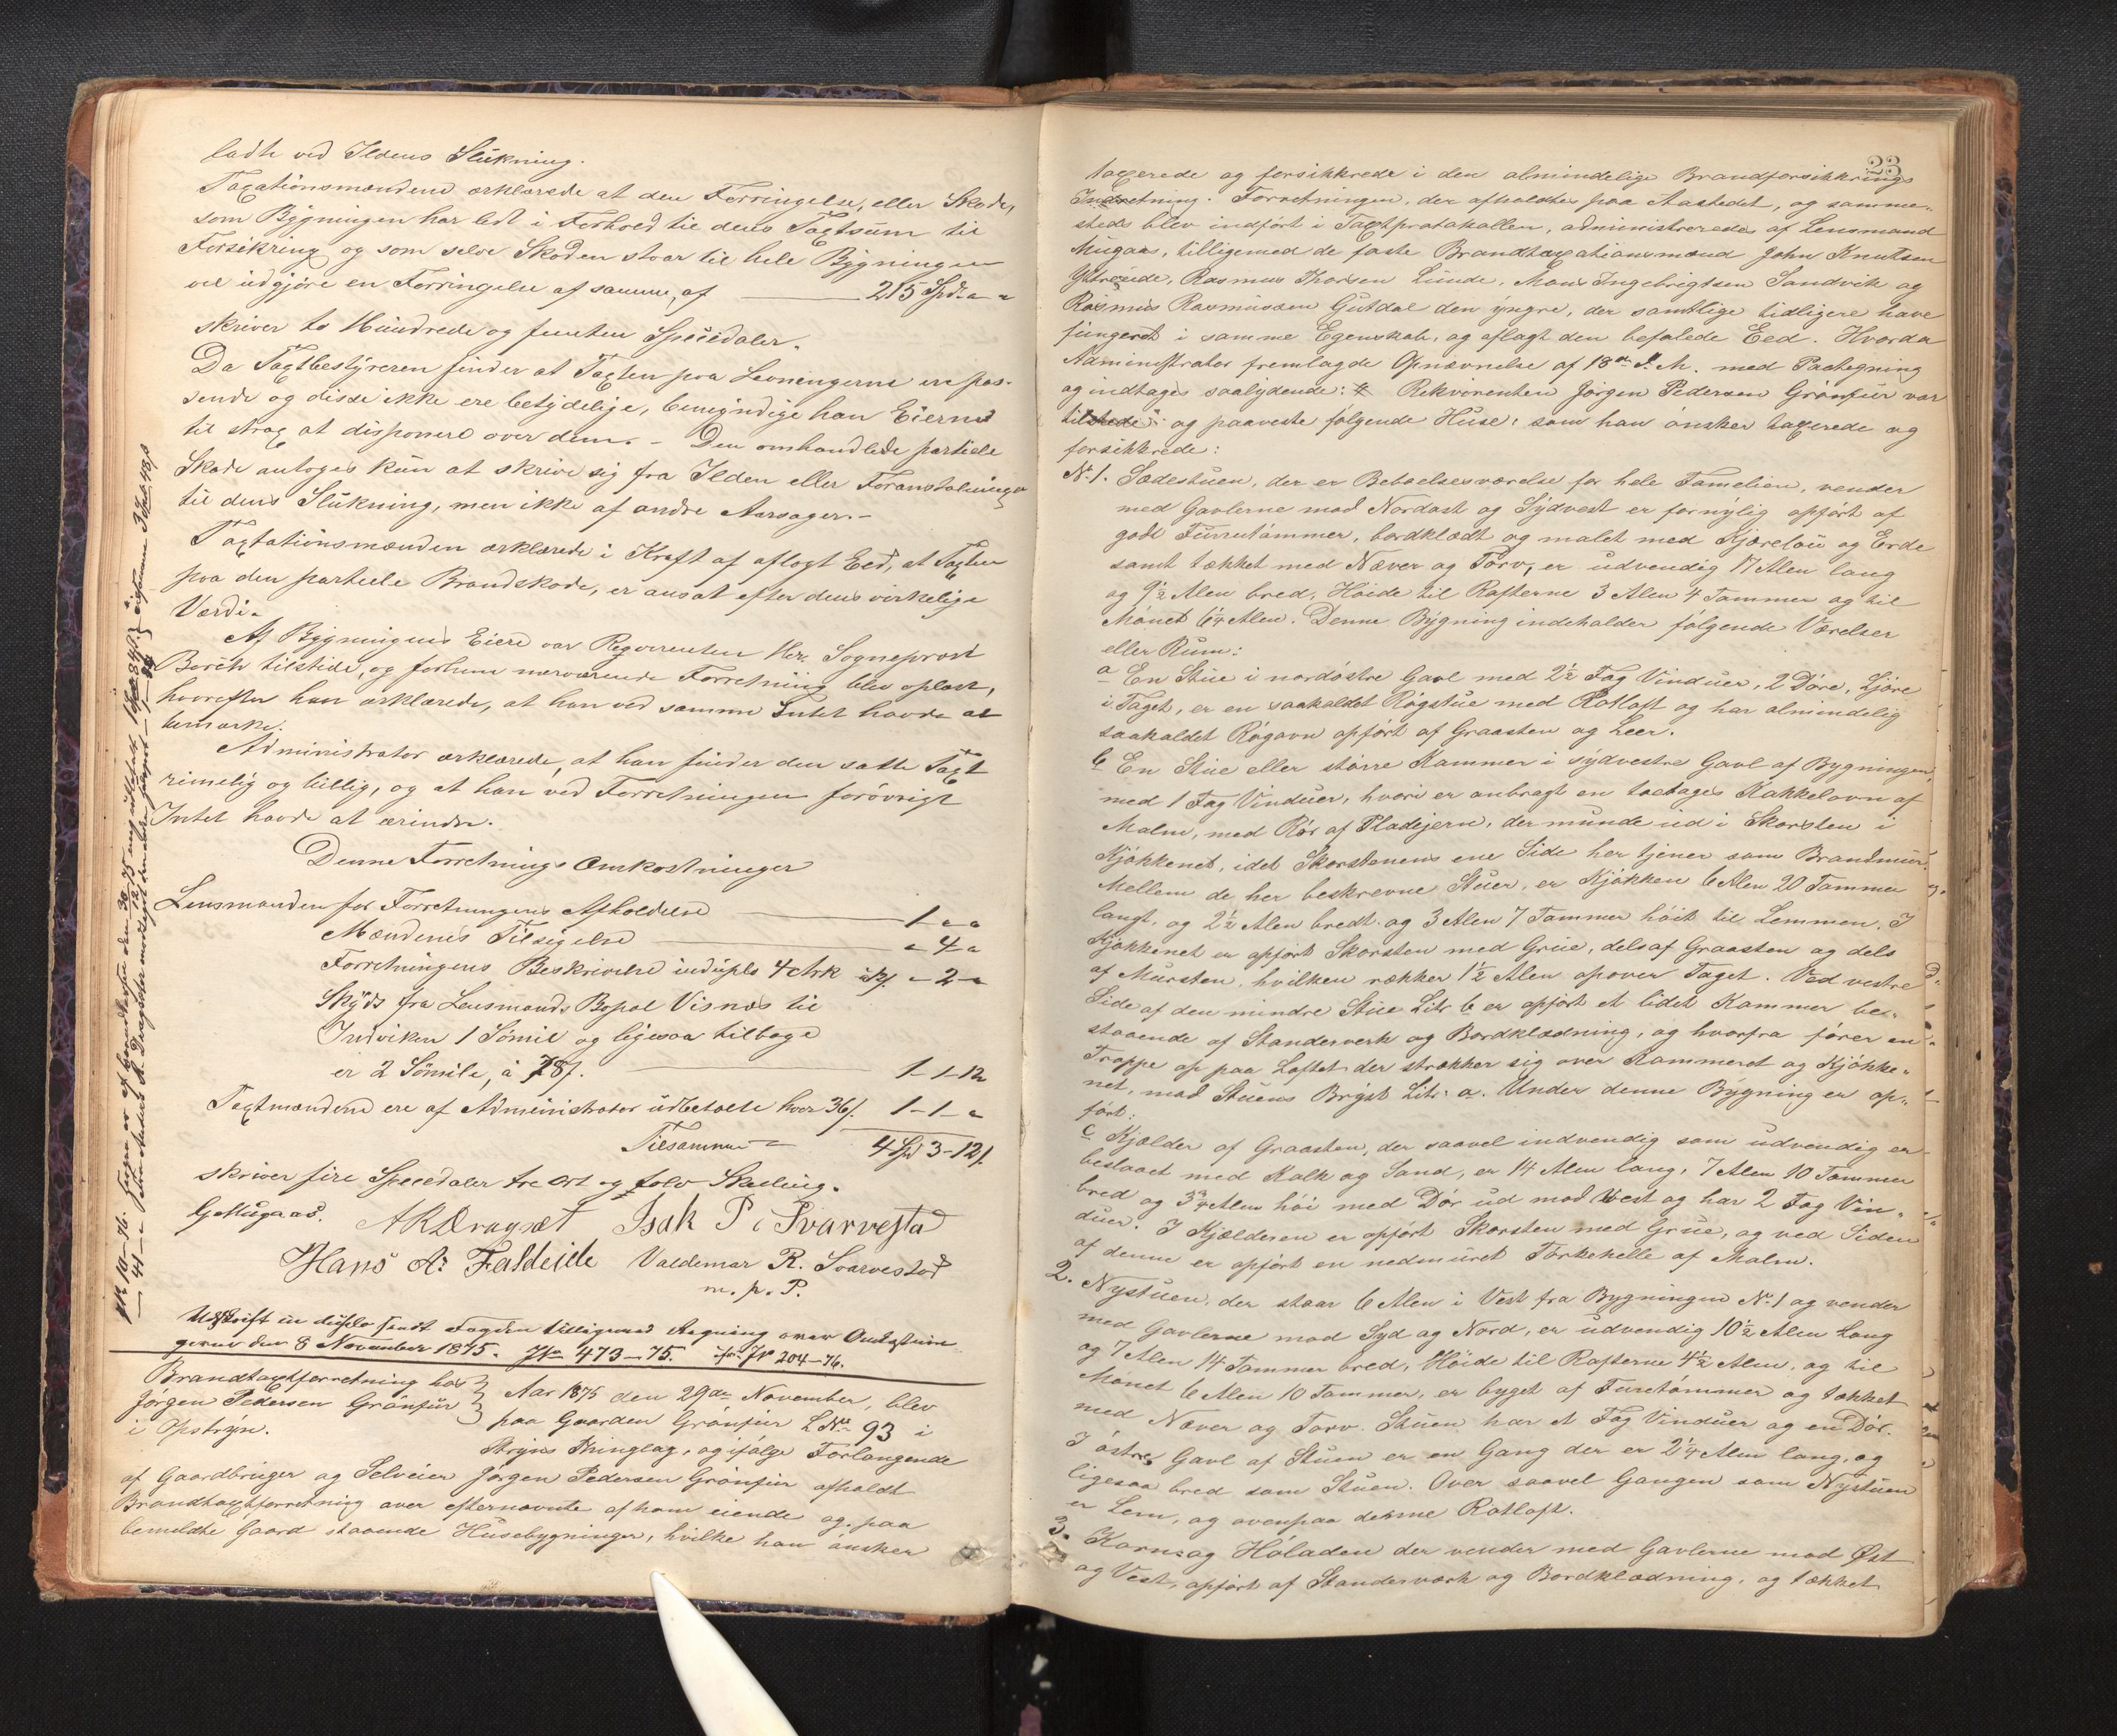 ladte ved Ildens Slukning.
Taxationsmændene erklærede at den Forringelse, eller Skade,
som Bygningen har lidt i Forhold til dens Taxtsum til
Forsikring og som selve Skaden staar til hele Bygningen
vil udgjøre en Forringelse af samme, af 215 Spd. " "
skriver to Hundrede og femten Speciedaler.
Da Taxtbestyreren finder at Taxten paa Levningerne ere pas-
sende og disse ikke ere betydelige, bemyndige han Eierne
til strax at disponere over dem. - Den omhandlede partielle
Skade antoges kun at skrive sig fra Ilden eller Foranstalninger
til dens Slukning, men ikke af andre Aarsager. -
Taxtationsmænden erklærede i Kraft af aflagt Eed, at Taxten
paa den partielle Brandskade, er ansat efter dens virkelige
Værdi.
Af Bygningens Eiere var Reqvirenten Hr. Sogneprest
Borch tilstede, og forham nærværende Forretning blev oplæst,
hvorefter han erklærede, at han ved samme Intet havde at
bemærke.
Administrator erklærede, at han finder den satte Taxt
rimelig og billig, og at han ved Forretningen forøvrigt
Intet havde at erindre.
Denne Forretnings Omkostninger
Lensmanden for Forretningens Afholdelse 1 " "
Mændenes Tilsigelse " 4 "
Forretningens Beskrivelse induplo 4 Ark " - 2 - "
Skyds fra Lensmands Bopæl Visnæs til
Indviken 1 Sømil og ligesaa tilbage
er 2 Sømile, à 78 s. 1 - 1 - 12
Taxtmændene ere af Administrator udbetalte hver 36 s. 1 - 1 - "
Tilsammen = 4 Spd 3 - 12 s.
skriver fire Speciedaler tre Ort og tolv Skilling.
G. Mugaas. A K Dragsæt Isak P. Svarvestad
Hans A: Faldeide Valdemar R. Svarvestad
m. p. P.
Udskrift in duplo sendt Fogden tilligemed Regning over Omkostnin-
gerne den 8 November 1875. Jr 473-75. jfr. Jr 204-76.
Brandtaxtforretning hos
Jørgen Pedersen Grønfur
i Opstryn.
Aar 1875 den 29de November, blev
paa Gaarden Grønfur L No 93 i
Stryns Thinglag, og ifølge Forlangende
af Gaardbruger og Selveier Jørgen Pedersen Grønfur afholdt
Brandtaxtforretning over efternævnte af ham eiende og paa
bemeldte Gaard staaende Husebygninger, hvilke han ønsker
23
taxerede og forsikkrede i den almindelige Brandforsikkrings
Indretning. Forretningen, der afholdtes paa Aastedet, og samme-
steds blev indført i Taxtprotokollen, administreredes af Lensmand
Mugaas, tilligemed de faste Brandtaxationsmænd John Knutsen
Ytreeide, Rasmus Thorsen Lunde, Mons Ingebrigtsen Sandvik og
Rasmus Rasmussen Gutdal den yngre, der samtlige tidligere have
fungeret i samme Egenskab, og aflagt den befalede Eed. Hvorda
Administrator fremlagde Opnævnelse af 18de d. M. med Paategning
og indtages saalydende: Rekvirenten Jørgen Pedersen Grønfur var
tilstede og paaveste følgende Huse, som han ønsker taxerede og
forsikkrede:
No 1. Sædestuen, der er Beboelsesværelse for hele Famelien, vender
med Gavlerne mod Nordost og Sydvest er fornylig opført af
godt Furrutømmer, bordklædt og malet med Kjæreløu og Erde
samt tækket med Næver og Torv, er udvendig 17 Alen lang
og 9½ Alen bred, Høide til Rafterne 3 Alen 4 Tommer og til
Mønet 6¼ Alen. Denne Bygning indeholder følgende Værelser
eller Rum:
a En Stue i nordøstre Gavl med 2½ Fag Vinduer, 2 Døre, Ljøre
i Taget, er en saakaldet Røgstue med Rotloft og har almindelig
saakaldet Røgovn opført af Graasten og Leer.
b En Stue eller større Kammer i sydvestre Gavl af Bygningen,
med 1 Fag Vinduer, hvori er anbragt en toetages Kakkelovn af
Malm, med Rør af Pladejern, der munde ud i Skorsten i
Kjøkkenet, idet Skorstenens ene Side her tjener som Brandmur.
Mellem de her beskrevne Stuer, er Kjøkken 6 Alen 20 Tommer
langt, og 2½ Alen bredt og 3 Alen 7 Tommer høit til Lemmen. I
Kjøkkenet er opført Skorsten med Grue, dels af Graasten og dels
af Mursten, hvilken rækker 1½ Alen opover Taget. Ved vestre
Side af den mindre Stue Litr b er opført et lidet Kammer be-
staaende af Standerverk og Bordklædning, og hvorfra fører en
Trappe op paa Loftet der strækker sig over Kammeret og Kjøkke-
net, mod Stuens Bryst Litr: a. Under denne Bygning er op-
ført:
c Kjælder af Graasten, der saavel indvendig som udvendig er
beslaaet med Kalk og Sand, er 14 Alen lang, 7 Alen 10 Tommer
bred og 3¾ Alen høi med Dør ud mod Vest og har 2 Fag Vin-
duer. I Kjælderen er opført Skorsten med Grue, og ved Siden
af denne er opført en nedmuret Tørkehelle af Malm.
2. Nystuen, der staar 6 Alen i Vest fra Bygningen No 1 og vender
med Gavlerne mod Syd og Nord, er udvendig 10½ Alen Lang
og 7 Alen 14 Tommer bred, Høide til Rafterne 4½ Alen, og til
Mønet 6 Alen 10 Tommer, er byget af Furetømmer og tækket
med Næver og Torv. Stuen har et Fag Vinduer og en Dør.
I østre Gavl af Stuen er en Gang der er 2¼ Alen lang, og
ligesaa bred som Stuen. Over saavel Gangen som Nystuen
er Lem, og ovenpaa denne Rotloft.
3. Korn- og Høladen der vender med Gavlerne mod Øst
og Vest, opført af Standerværk og Bordklædning, og tækket